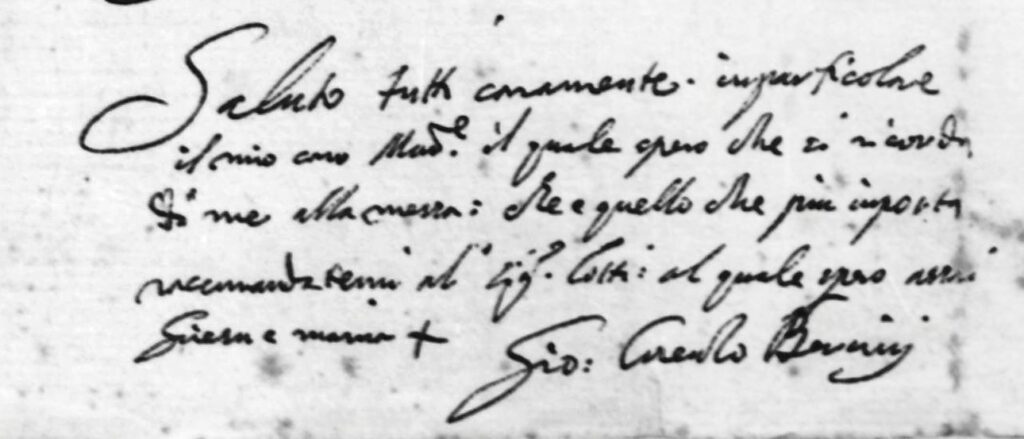 Saluto tutti caramente. inparticolare
il mio caro il quale spero che si ricorda
di me alla messa: che e quello che più inporta
raccomandatemi al Cotti: al quale spero assai
Giesu e maria +
Gio: Lorenzo Bernini